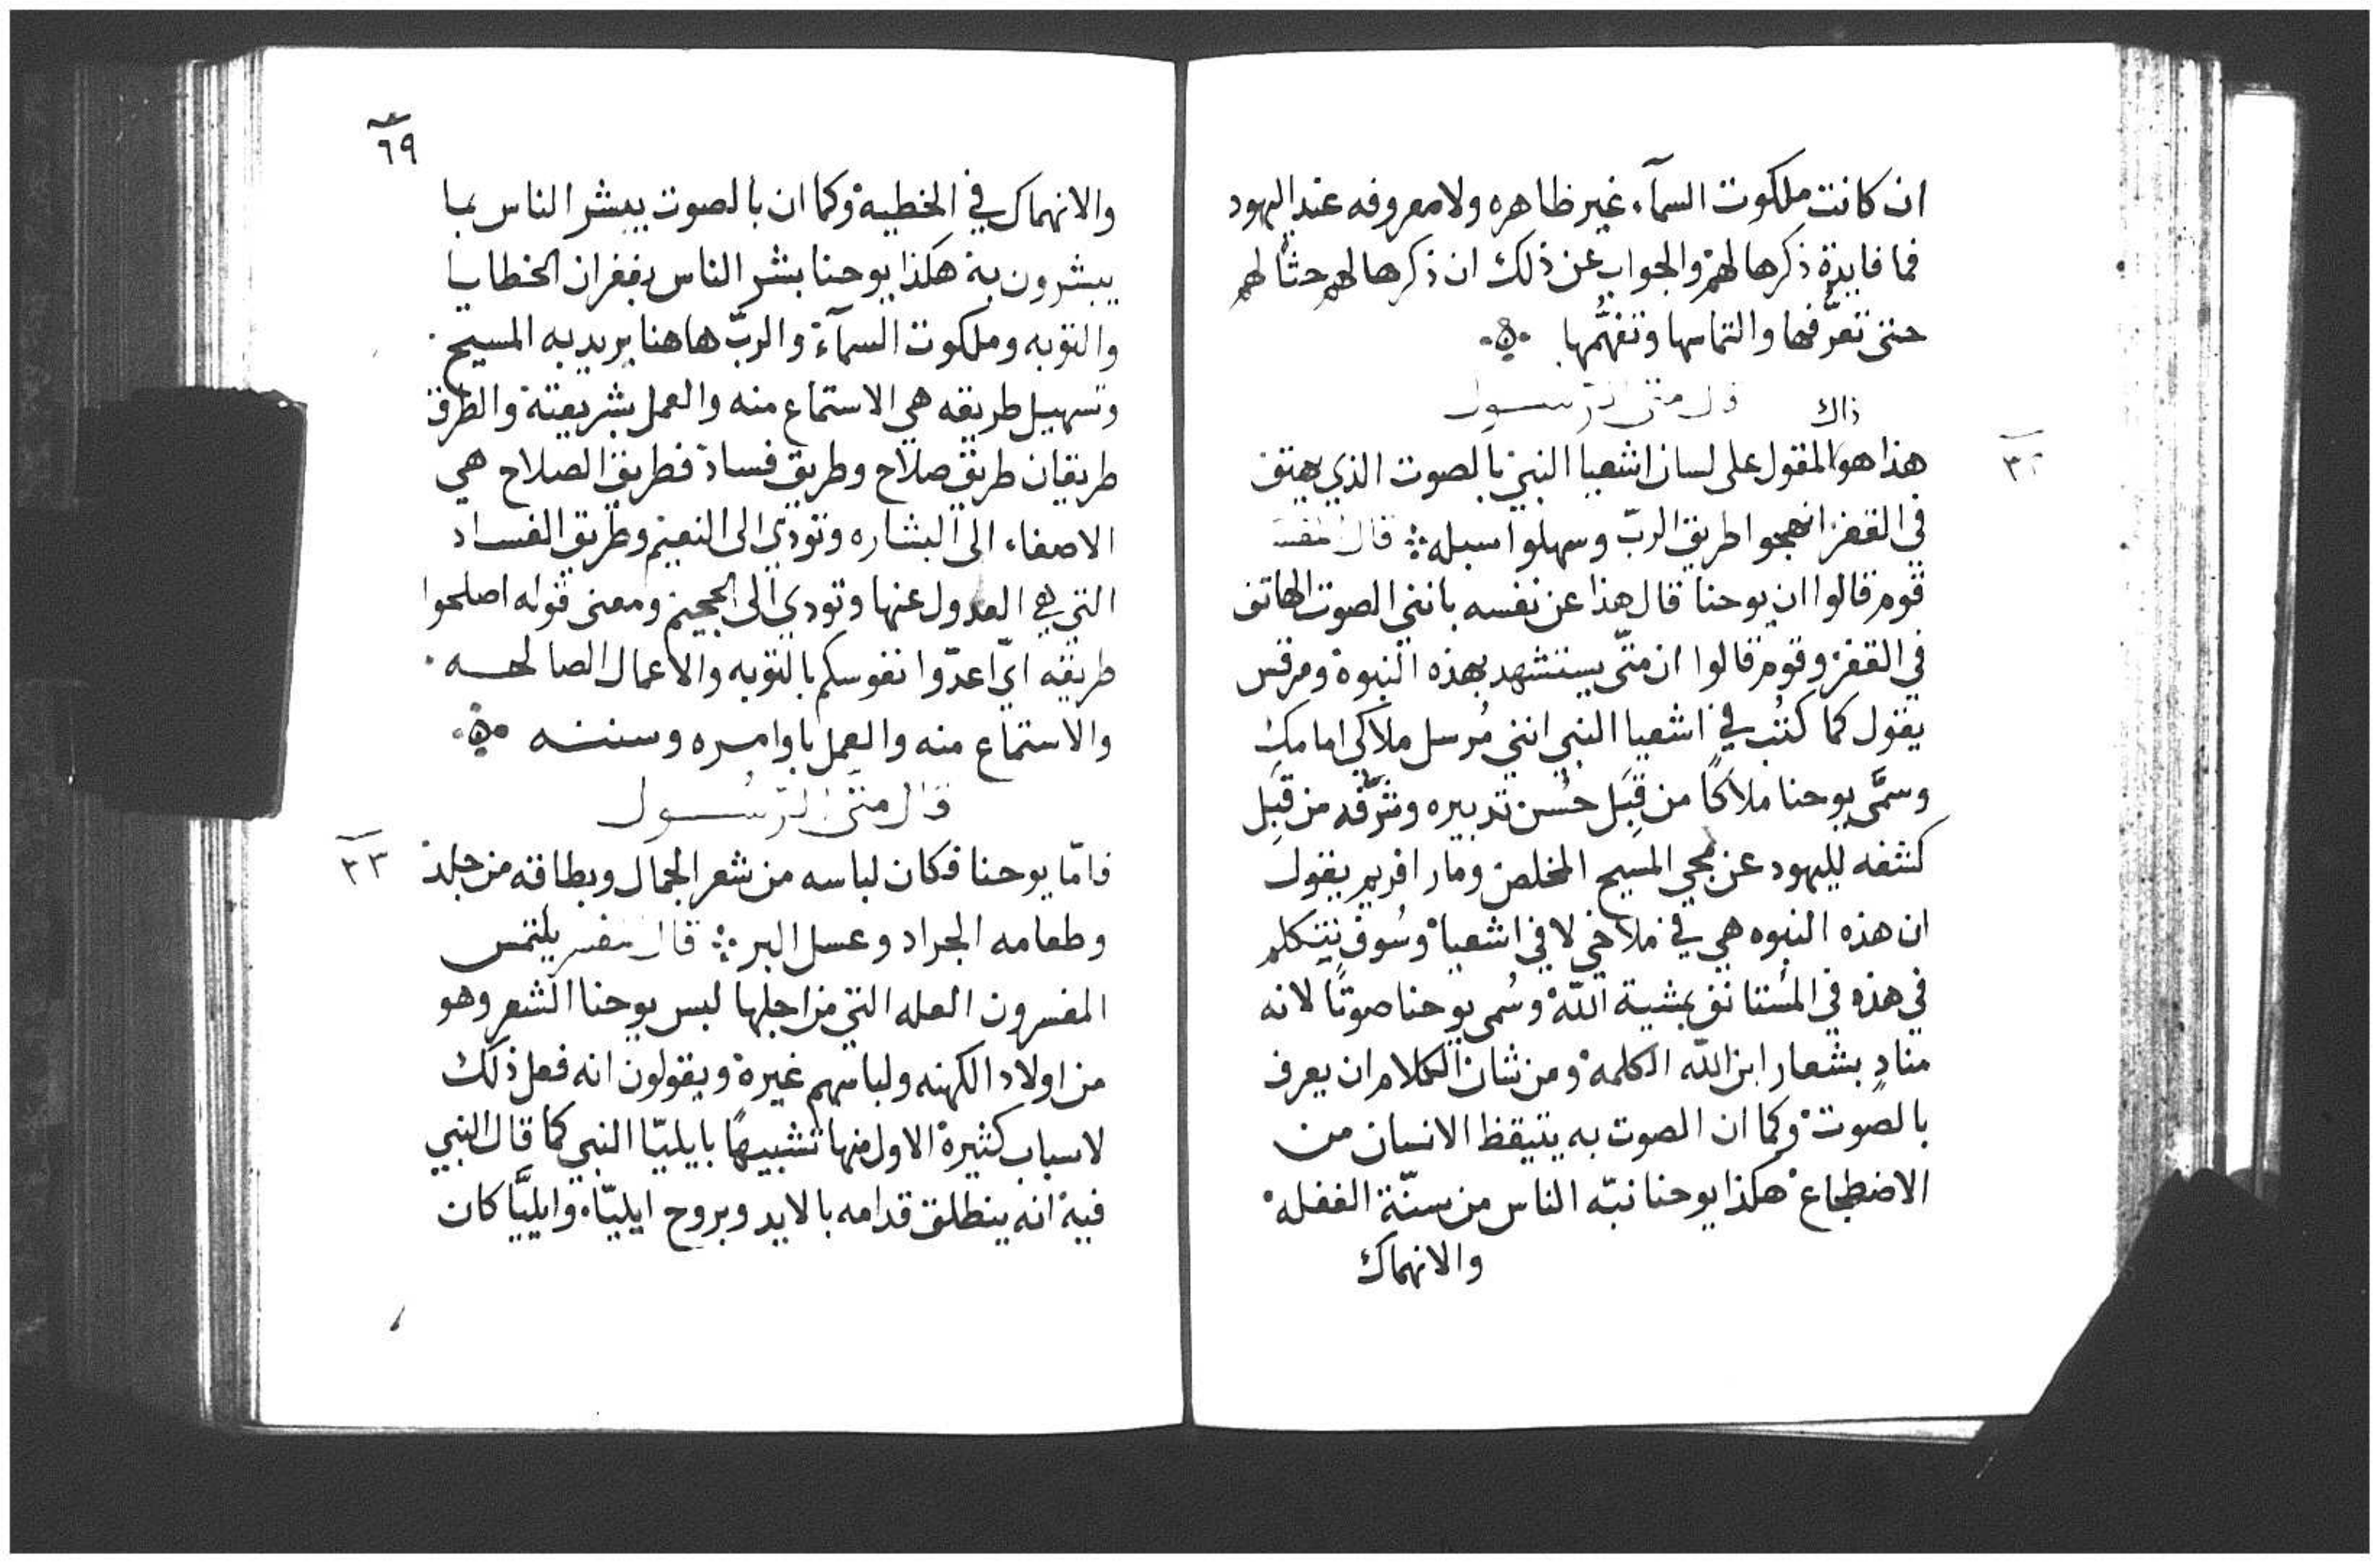 ان كانت ملكوت السمآء غير ظاهره ولا معروفه عند اليهود
فما فايدة ذكرها لهم والجواب عن ذلك ان ذكرها لهم حثًا لهم
حتى تعرُّفها والتماسها وتفهُّمها
قال متى الرسول
ذاك
٣٢
هذا هو المقول على لسان اشعيا النبي بالصوت الذي يهتف
في القفر انهجوا طريق الربّ وسهلوا سبله قال المفسر
قوم قالوا ان يوحنا قال هذا عن نفسه بانني الصوت الهاتف
في القفر وقوم قالوا ان متّى يستشهد بهذه النبوة ومرقس
يقول كما كُتب في اشعيا النبي انني مُرسل ملاكي امامك
وسمَّى يوحنا ملاكًا من قِبَل حُسن تدبيره وشَرَّفه من قِبَل
كشفه لليهود عن مجي المسيح المخلص ومار افريم يقول
ان هذه النبوه هي في ملاخي لا في اشعيا وسُوف نتكلم
في هذه في المُستانف بمشية اللّه وسُمي يوحنا صوتًا لانه
منادٍ بشعار ابن اللّه الكلمة ومن شان الكلام ان يعرف
بالصوت وكما ان الصوت به يتيقظ الانسان من
الاضطجاع هكذا يوحنا نبّه الناس من سنّة الغفله
والانهماك
٦٩
والانهماك في الخطية وكما ان بالصوت يبشر الناس بما
يبشرون به هكذا يوحنا بشر الناس بغفران الخطايا
والتوبه وملكوت السمآء والربّ هاهنا يريد به المسيح
وتسهيل طريقه هي الاستماع منه والعمل بشريعته والطرق
طريقان طريق صلاح وطريق فساد فطريق الصلاح هي
الاصغاء الى البشاره وتودي الى النعيم وطريق الفساد
التي هي العدول عنها وتودي الى الجحيم ومعنى قوله اصلحوا
طريقه ايّ اعدّوا نفوسكم بالتوبه والاعمال الصالحه
والاستماع منه والعمل باوامره وسننه
قال متى الرسُول
٣٣
فامّا يوحنا فكان لباسه من شعر الجمال وبطاقه من جلد
وطعامه الجراد وعسل البر قال المفسر يلتمس
المفسرون العله التي من اجلها لبس يوحنا الشعر وهو
من اولاد الكهنه ولباسهم غيره ويقولون انه فعل ذلك
لاسباب كثيرة الاول منها تشبيهًا بايليّا النبي كما قال النبي
فيه انه ينطلق قدامه بالايد وبروح ايليّاء وايليَّا كان